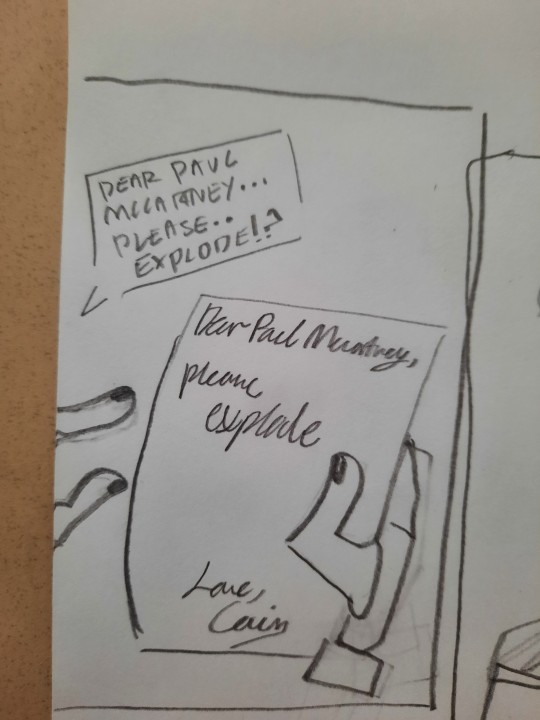 DEAR PAUL
MCCARTNEY...
PLEASE..
EXPLODE!?
Dear Paul Mccartney,
please
explode
Love,
Cain